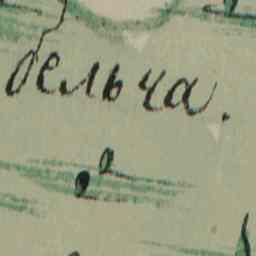 бельча.